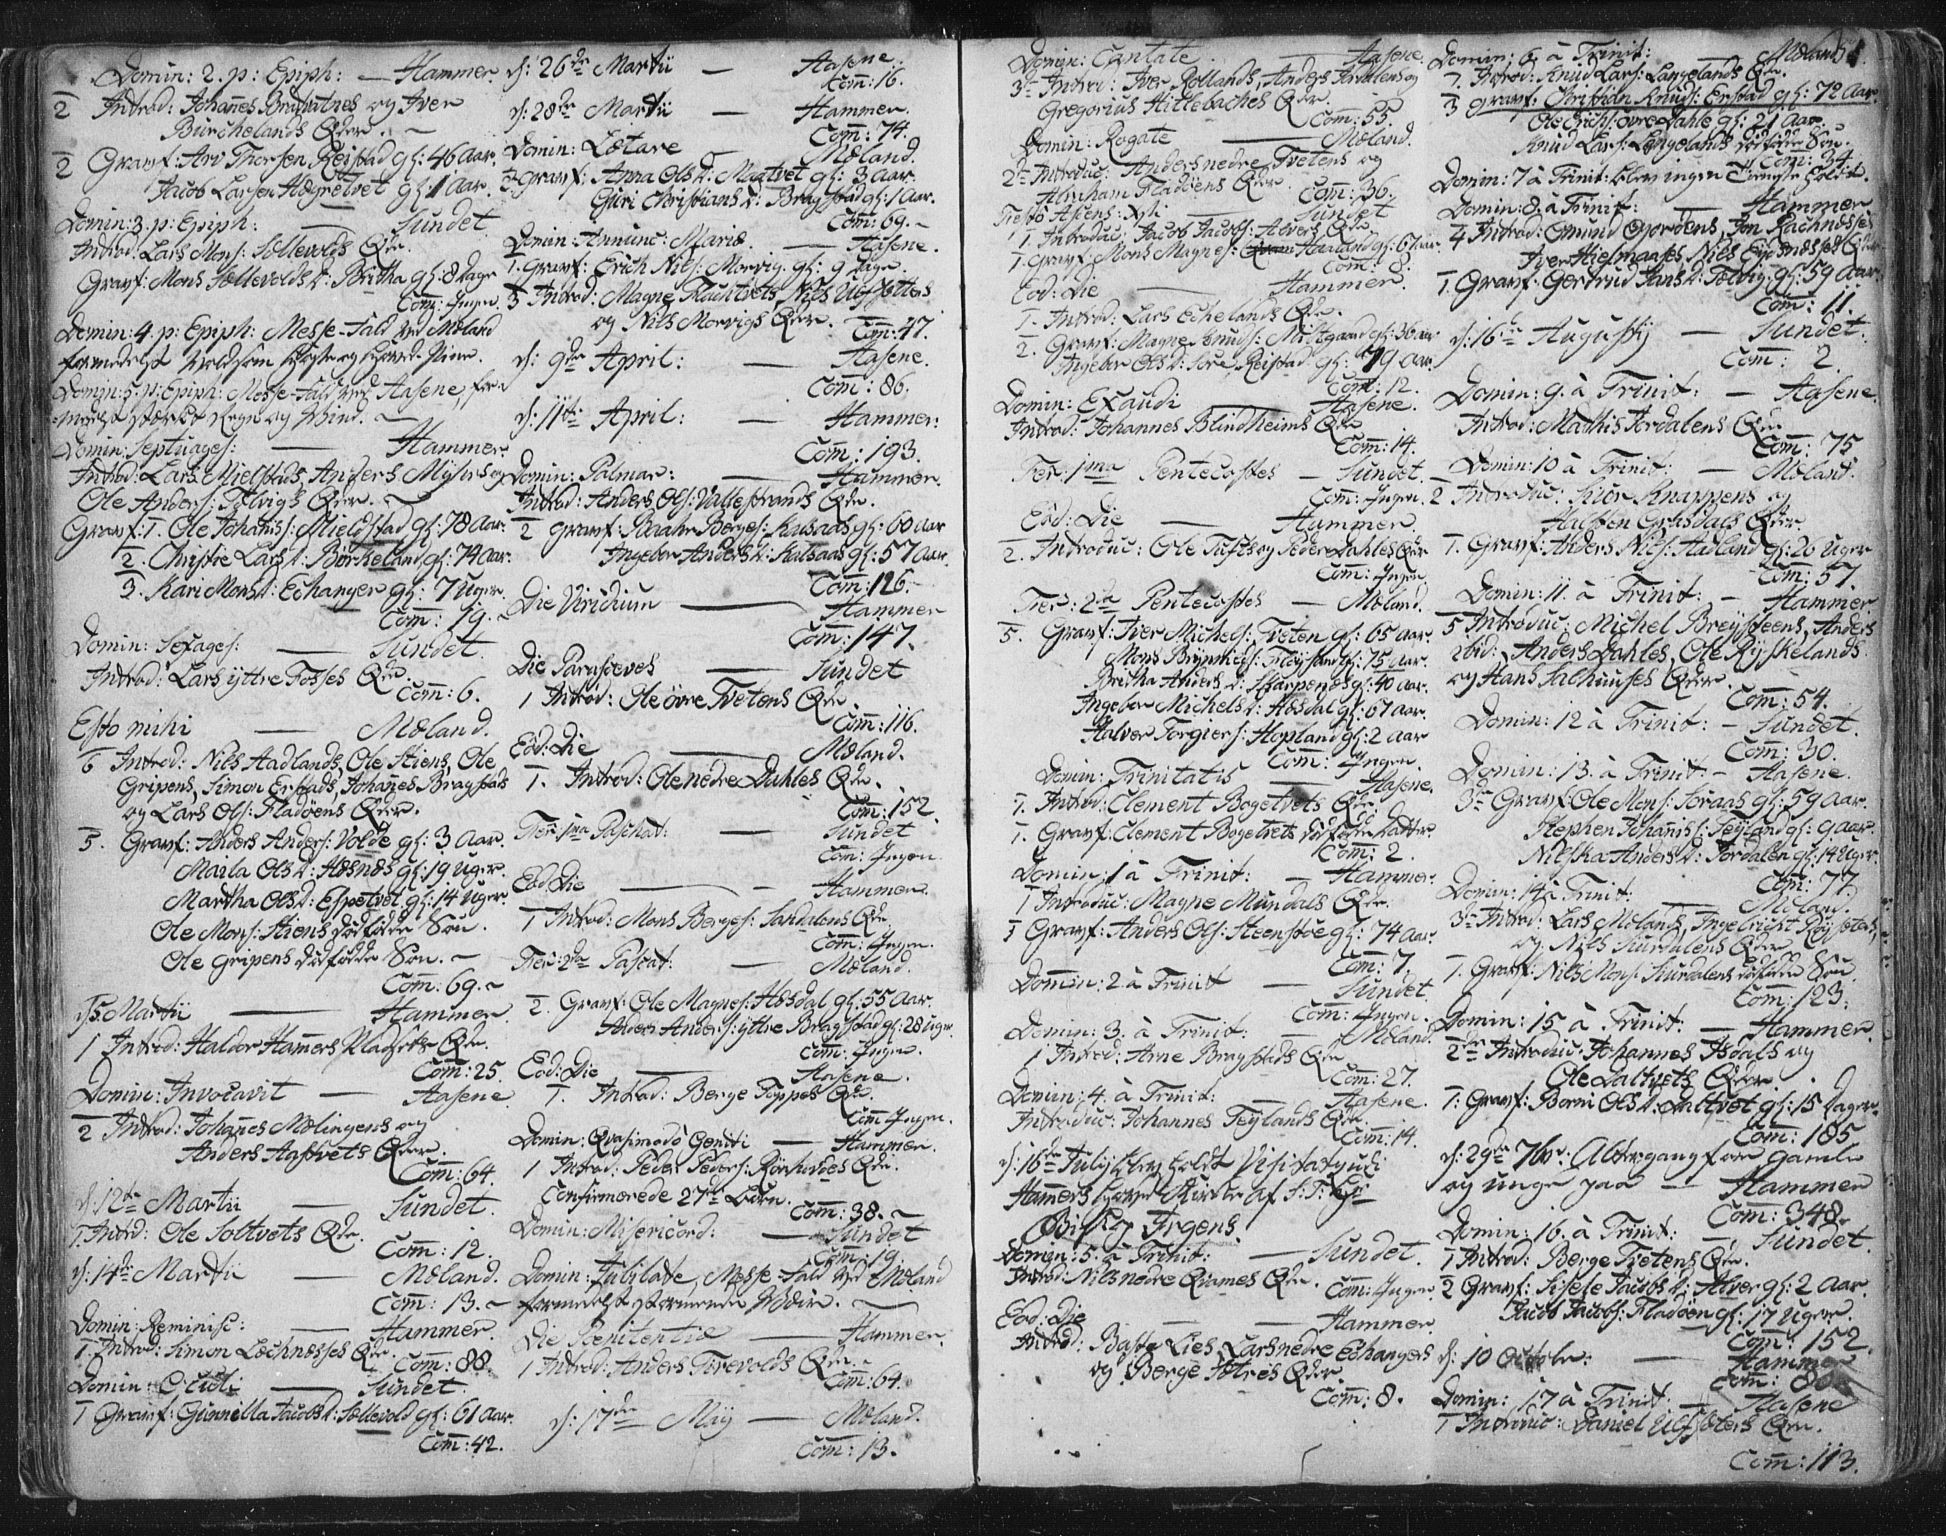 Domin: 2. p: Epiph: — Hammer
2 Introd: Johanes og Iver
Burkelands Qvr.
2 Gravf: Arv Thorsen Reistad gl: 46 Aar.
Jacob Larsen gl: 1 Aar.
Domin: 3. p: Epiph: — Sundet
Introd: Lars Mons: Sollevolds Qve.
Gravf: Mons Sollevolds d: Britha gl: 8 dage
Com: Ingen
Domin: 4. p: Epiph: Messe-Fald ved Mæland
formedelst
Domin: 5. p: Epiph: Messe-Fald ved Aasene, for-
medelst stærk Regn og Wind. —
Domin: Septuages: — Hammer
Introd: Lars Mielstads, Anders og
Ole Anders: Tolvigs Qver. —
Gravf: 1. Ole Johans: Mieldstad gl: 78 Aar.
2. Christie Lars d: Børkeland gl: 74 Aar.
3. Kari Mons d: Echanger gl: 7 Uger.
Com: 19. —
Domin: Sexages: — Sundet.
Introd: Lars yttre Fosses Qve.
Com: 6.
Esto mihi — Mæland.
6 Introd: Nils Aadlands, Ole Stiens, Ole
Gripens, Simon Erstads, Johanes Bragstads
og Lars Ols: Fladøens Qver.
5. Gravf: Anders Anders: Volde gl: 3 Aar.
Marta Ols d: Hosnæs gl: 19 Uger.
Martha Ols d: Espetvet gl: 14 Uger.
Ole Mons: Stiens dødfødde Søn.
Ole Gripens dødfødde Søn. —
Com: 69. —
d: 5 Martii — Hammer.
1 Introd: Haldor Hamers Pladsets Qve.
Com: 25.
Domin: Invocavit — Aasene
2 Introd: Johanes Mælingens og
Anders Aastvets Qver.
Com: 64.
d: 12te Martii — Sundet.
1. Introd: Ole Soltvets Qve.
Com: 12.
d: 14de Martii — Mæland.
Com: 13. —
Domin: Reminisc: — Hammer.
1. Introd: Simon Lechnesses Qve.
Com: 88.
Domin: Oculi — Sundet.
1 Gravf: Gunnilla Jacobs d: Sollevold gl: 61 Aar.
Com: 42.
d: 26de Martii — Aasene.
Com: 16.
d: 28de Martii — Hammer.
Com: 74.
Domin: Lætare — Mæland.
2 Gravf: Anna Ols d: Maatvet gl: 3 Aar.
Guri Christians d: Bragstad gl: 1 Aar.
Com: 69. —
Domin: Annunc: Mariæ — Aasene.
1. Gravf: Erich Nils: Morvig gl: 9 dage.
3 Introd: Magne Flachtvets, Nils Ulfsettens
og Nils Morvigs Qver.
Com: 47.
d: 9de April: — Aasene.
Com: 86.
d: 11te April: — Hammer:
Com: 193.
Domin: Palmar: — Hammer.
Introd: Anders Ols: Vallestrands Qve.
2 Gravf: Brathe Berges: Kalsaas gl: 60 Aar
Ingebor Anders d: Kalsaas gl: 57 Aar.
Com: 126.
Die Viridium — Hammer
Com: 147.
Die Parasceves — Sundet
1 Introd: Ole øvre Tvetens Qve.
Com: 116.
Eod: Die — Mæland.
1. Introd: Ole nedre Dahles Qve.
Com: 152.
Fer: 1ma Paschat: — Sundet
Com: Ingen
Eod: Die — Hammer.
1 Introd: Mons Berges: Sandalens Qve.
Com: Ingen.
Fer: 2da Pascat: — Mæland.
2. Gravf: Ole Magnes: Hosdal gl: 55 Aar.
Anders Anders: yttre Bragstad gl: 28 Uger.
Com: Ingen.
Eod: Die — Aasene.
1. Introd: Berge Toppes Qve.
Com: Ingen.
Domin: Qvasimodo Geniti — Hammer.
1 Introd: Peder Peders: Qve.
Confirmerede 27de Børn.
Com: 38. —
Domin: Misericord: — Sundet
Com: 19.
Domin: Jubilate, Messe-Fald ved Mæland
formedelst stormende Vædir.
Die Pænitentiæ — Hammer.
1 Introd: Anders Tirevolds Qve.
Com: 64.
d: 17de Maij — Mæland.
Com: 13.
Domin: Cantate — Aasene.
3. Introd: Iver Rollands, Anders og
Gregorius Hillebaches Qver.
Com: 55.
Domin: Rogate — Mæland.
2 Introduc: Anders nedre Tvetens og
Abraham Fladøens Qver.
Com: 36.
Festo Ascens: Xsti — Sundet
1. Introduc: Jacob Jacobs: Alvers Qve.
1. Gravf: Mons Magnes: Haaland gl: 67 Aar.
Com: 8.
Eod: Die — Hammer.
1. Introd: Lars Echelands Qve.
2. Gravf: Magne Knuds: Midtgaard gl: 36 Aar
Ingebor Ols d: Sore Reistad gl: 79 Aar.
Com: 12.
Domin: Exaudi — Aasene.
Introd: Johannes Blindheims Qve.
Com: 14.
Fer: 1ma Pentecostes — Sundet.
Com: Ingen.
Eod: Die — Hammer.
2. Introduc: Ole Tufts og Peder Dahles Qver
Com: Ingen.
Fer: 2da Pentecostes — Mæland.
5. Gravf: Iver Michels: Tveten gl: 65 Aar.
Mons Brynnilds: gl: 75 Aar.
Britha Anders d: Skarpenæs gl: 40 Aar.
Ingebor Michels d: Hosdal gl: 67 Aar.
Halver Torgiers: Hopland gl: 2 Aar
Com: Ingen.
Domin: Trinitatis — Aasene.
1. Introd: Clement Bogetvets Qve.
1. Gravf: Clement Bogetvets dødfødde Datter.
Com: 2.
Domin: 1 à Trinit: — Hammer.
1 Introduc: Magne Mundals Qve.
1 Gravf: Anders Ols: Steenstøe gl: 74 Aar.
Com: 7.
Domin: 2 à Trinit — Sundet.
Com: Ingen.
Domin: 3. à Trinit: — Mæland.
1 Introd: Arne Bragstads Qve
Com: 27.
Domin: 4. à Trinit: — Aasene.
Introduc: Johannes Teylands Qve.
Com: 14.
d: 16de Julij blev holdt Visitatz udi
Hamers Kirke af S: T: Hr
Biskop Irgens.
Domin: 5. à Trinit: — Sundet.
Introd: Nils nedre Qvames Qve.
Com: Ingen.
Eod: Die — Hammer.
Introd: Baste Lies, Lars nedre Echangers
og Berge Qver.
Com: 8.
Domin: 6. à Trinit: — Mæland.
1. Introd: Knud Lars: Langelands Qve.
3 Gravf: Christian Knuds: Erstad gl: 72 Aar.
Ole Erichs: øvre Dahle gl: 21 Aar.
Knud Lars: Langelands dødfødde Søn.
Com: 34.
Domin: 7 à Trinit: blev ingen Tieneste holdt.
Domin: 8. à Trinit: — Hammer
4 Introd: Omund Gjordens, Jon Rachnesses
Iver Hielmaases, Nils Eysnesses Qver.
1. Gravf: Gertrud Hans d: Tolvig gl: 59 Aar.
Com: 11.
d: 16de Augustij — Sundet.
Com: 2.
Domin: 9. à Trinit: — Aasene.
Introd: Mathis Fordalens Qve
Com: 75
Domin: 10 à Trinit: — Mæland.
2 Introduc: Siur Knappens og
Halsten Grasdals Qver.
1. Gravf: Anders Nils: Aadland gl: 26 Uger
Com: 57.
Domin: 11. à Trinit: — Hammer
5 Introduc: Michel Breysteens, Anders
ibid:, Anders Dahles, Ole Ryskelands
og Hans Salhuuses Qver.
Com: 54.
Domin: 12 à Trinit: — Sundet.
Com: 30.
Domin: 13. à Trinit: — Aasene.
3. Gravf: Ole Mons: Soraas gl: 59 Aar.
Stephen Johans: Teyland gl: 9 Aar.
Nilska Anders d: Fordalen gl: 14 Uger.
Com: 77.
Domin: 14 à Trinit: — Mæland.
3. Introd: Lars Mælands, Ingebricht Røyseters,
og Nils Hurdalens Qver.
1. Gravf: Nils Mons: Hurdalens dødfødde Søn
Com: 123.
Domin: 15 à Trinit: — Hammer.
2de Introduc: Johannes Isdals og
Ole Saltvets Qver.
1. Gravf: Borni Ols d: Saltvet gl: 15 Dager
Com: 185
d: 29de 7br: Altergang for Gamle
og unge paa — Hammer
Com: 348.
Domin: 16. à Trinit: — Sundet.
1 Introd: Berge Tvetens Qve.
2 Gravf: Sisele Jacobs d: Alver gl: 2 Aar.
Jacob Jacobs: Fladøen gl: 17 Uger.
Com: 152.
d: 10 Octobr: — Hammer
Com: 80
Domin: 17 à Trinit — Aasene
1 Introduc: Daniel Ulfseters Qve.
Com: 113.